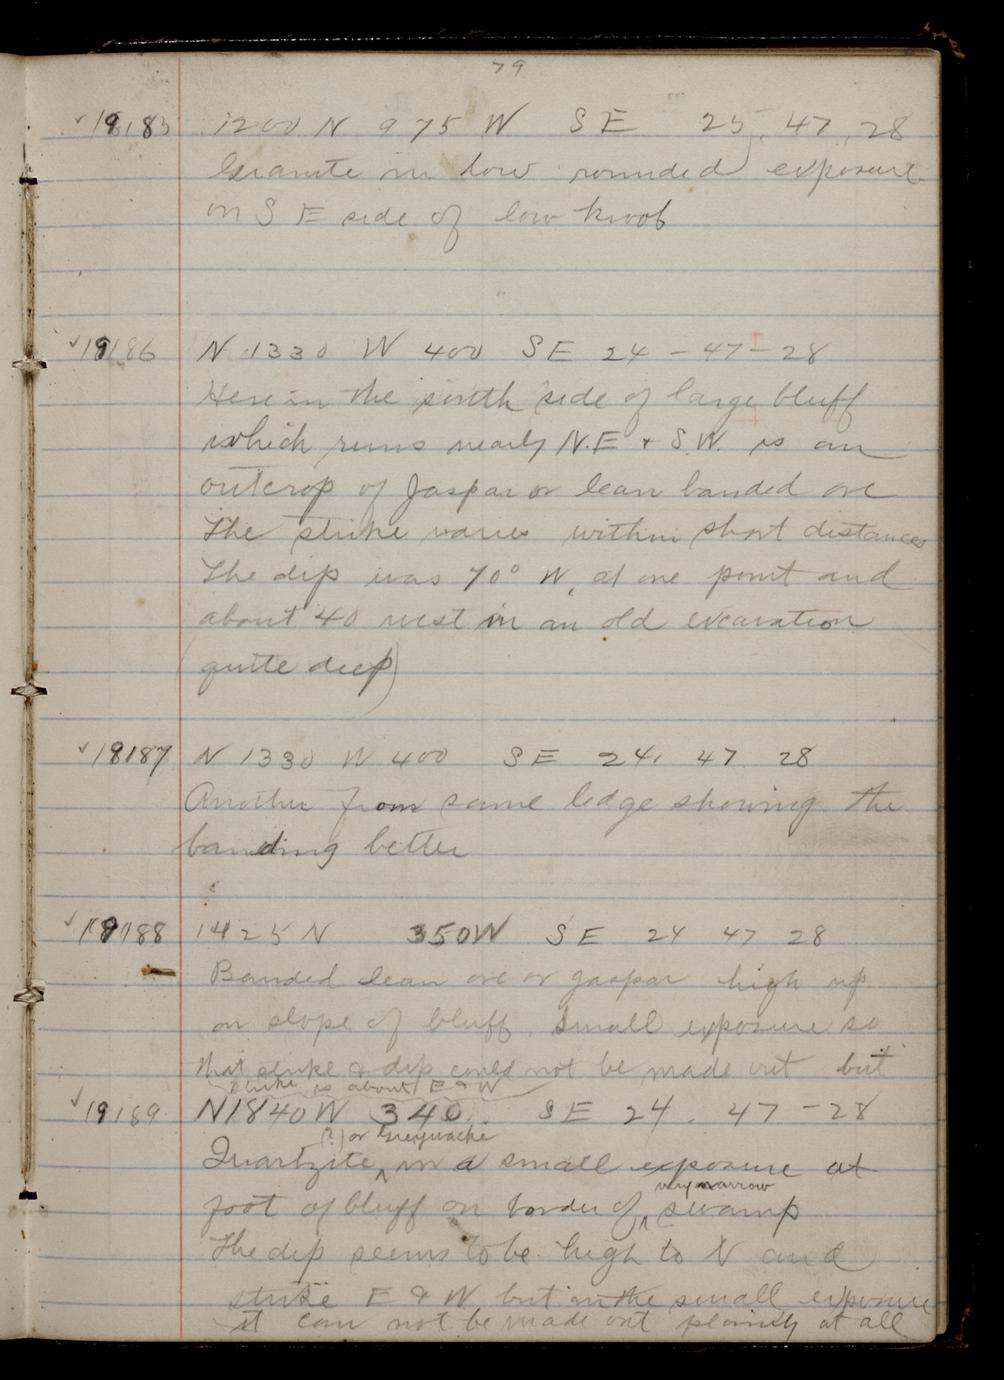 79
✓19183 1200 N 975 W SE 25, 47, 28
Granite in low rounded exposure
on S E side of low knob
✓19186 N 1330 W 400 SE 24 - 47 - 28
Here in the south side of large bluff
which runs nearly N.E + S.W. is an
outcrop of Jaspar or lean banded ore
The strike varies within short distances
The dip was 70° W, at one point and
about 40 west in an old excavation
(quite deep)
✓19187 N 1330 W 400 SE 24, 47 28
Another from same ledge showing the
banding better
✓19188 1425 N 350W SE 24 47 28
Banded lean ore or jaspar high up
on slope of bluff. Small exposure so
that strike & dip could not be made out but
strike is about E & W
✓19189 N1840W 340. SE 24. 47 - 28
(?) or Greywacke
Quartzite ^ in a small exposure at
very narrow
foot of bluff on border of ^ swamp
The dip seems to be high to N and
strike E & W but in the small exposure
it can not be made out plainly at all